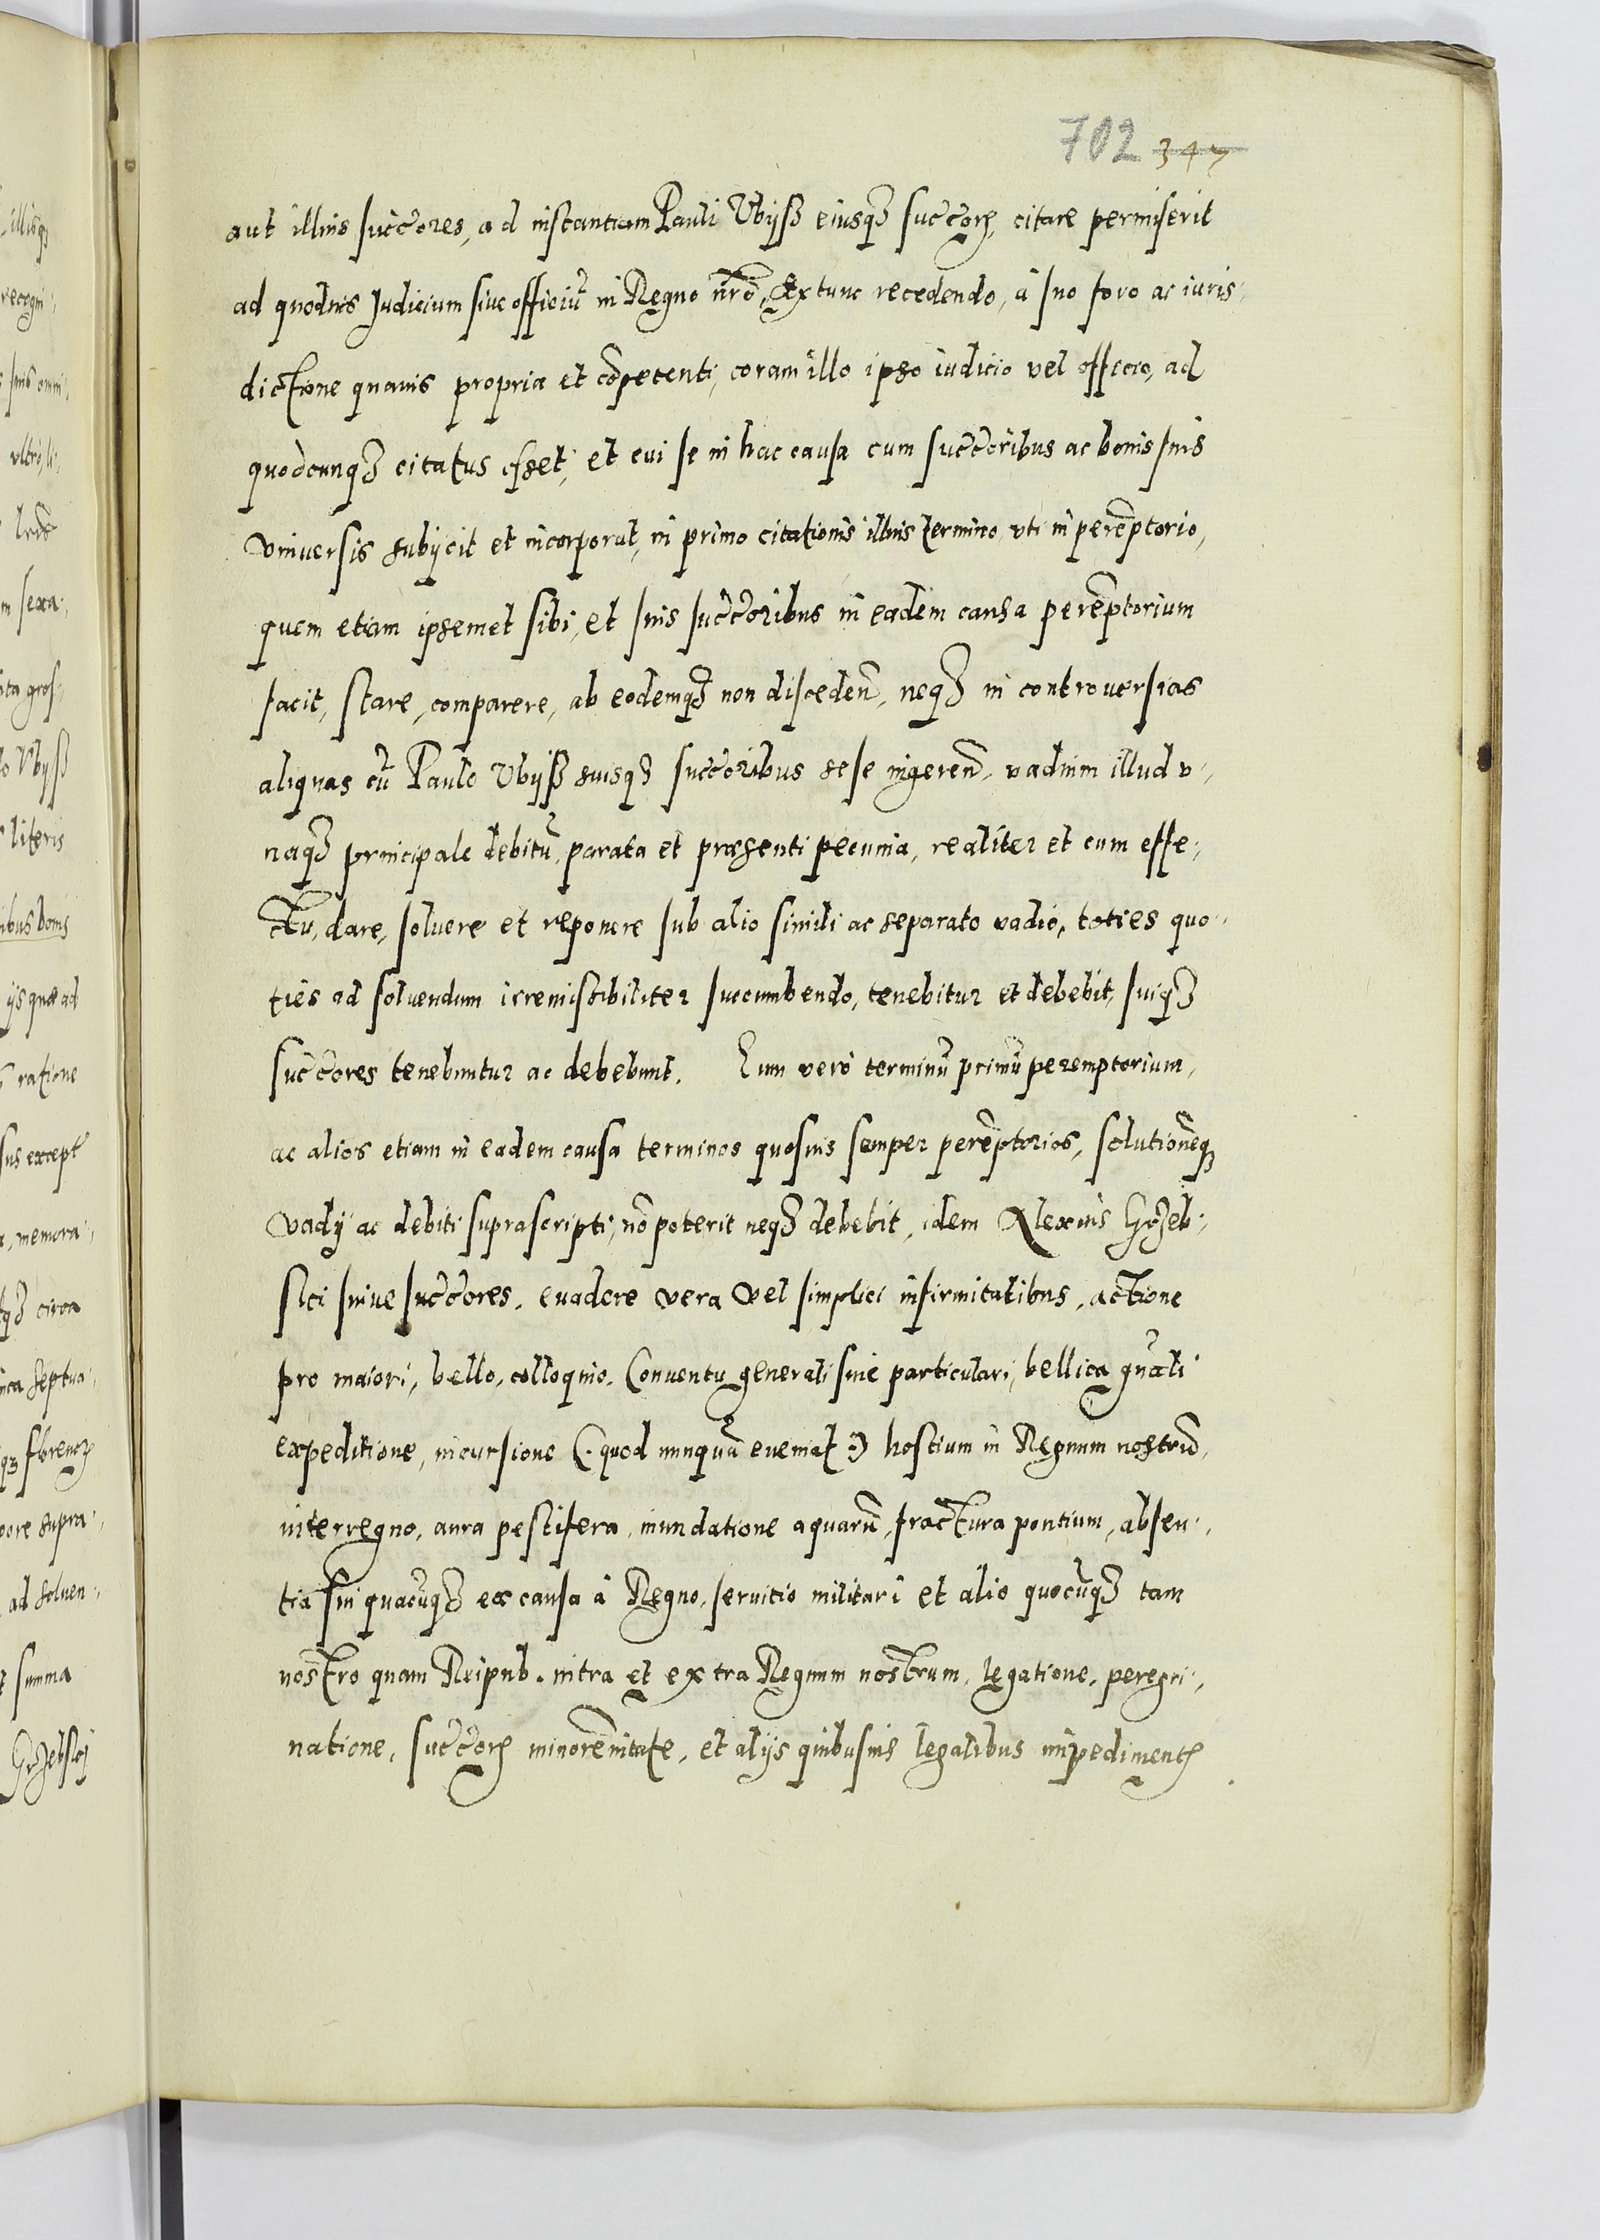 702 347
aut illius succ̃ores, ad instantiam Pauli Vbyss eiusq3 succ̃or, citare permiserit
ad quoduis Judicium siue officiũ in Regno nr̃o, Ex tunc recedendo, à suo foro ac iuris,
dictione quauis propria et cõpetenti, coram illo ipso iudicio vel officio, ad
quodcunq3 citatus esset, et cui se in hac causa cum succ̃oribus ac bonis suis
vniuersis subijcit et incorporat, in primo citationis illius termino vti in perẽptorio,
quem etiam ipsemet sibi, et suis succ̃oribus in eadem causa perẽptorium
facit, stare, comparere, ab eodemq3 non disceden̄, neq3 in controuersias
aliquas cũ Paulo Vbyss suisq3 succ̃oribus sese ingeren̄, vadium illud v,
naq3 principale debitũ, parata et præsenti pecunia, realiter et cum effe,
ctu, dare, soluere et reponere sub alio simili ac separato vadio, toties quo,
ties ad soluendum irremissibiliter succumbendo, tenebitur et debebit, suiq3
succ̃ores tenebuntur ac debebunt. Eum verò terminũ primũ peremptorium,
ac alios etiam in eadem causa terminos quosuis semper perẽptorios, solutionẽq3
vadij ac debiti suprascripti, nõ poterit neq3 debebit, idem Alexius Grzeb,
ski suiue succ̃ores, euadere vera vel simplici infirmitatibus, actione
pro maiori, bello, colloquio, Conuentu generali siue particulari, bellica gn̄ali
expeditione, incursione (: quod nunquã eueniat :) hostium in Regnum nostrũ,
interregno, aura pestifera, inundatione aquarũ, fractura pontium, absen,
tia sui quacũq3 ex causa à Regno, seruitio militari et alio quocũq3 tam
nostro quam Reipub. intra et extra Regnum nostrum, legatione, peregri,
natione, succ̃or minorẽnitate, et alijs quibusuis legalibus impediment